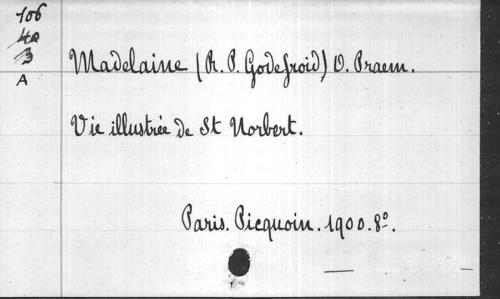 106
40
3
A
Madelaine (R. P. Godefroid) O. Praem.
Vie illustrée de St Norbert.
Paris. Picquoin. 1900. 8º.